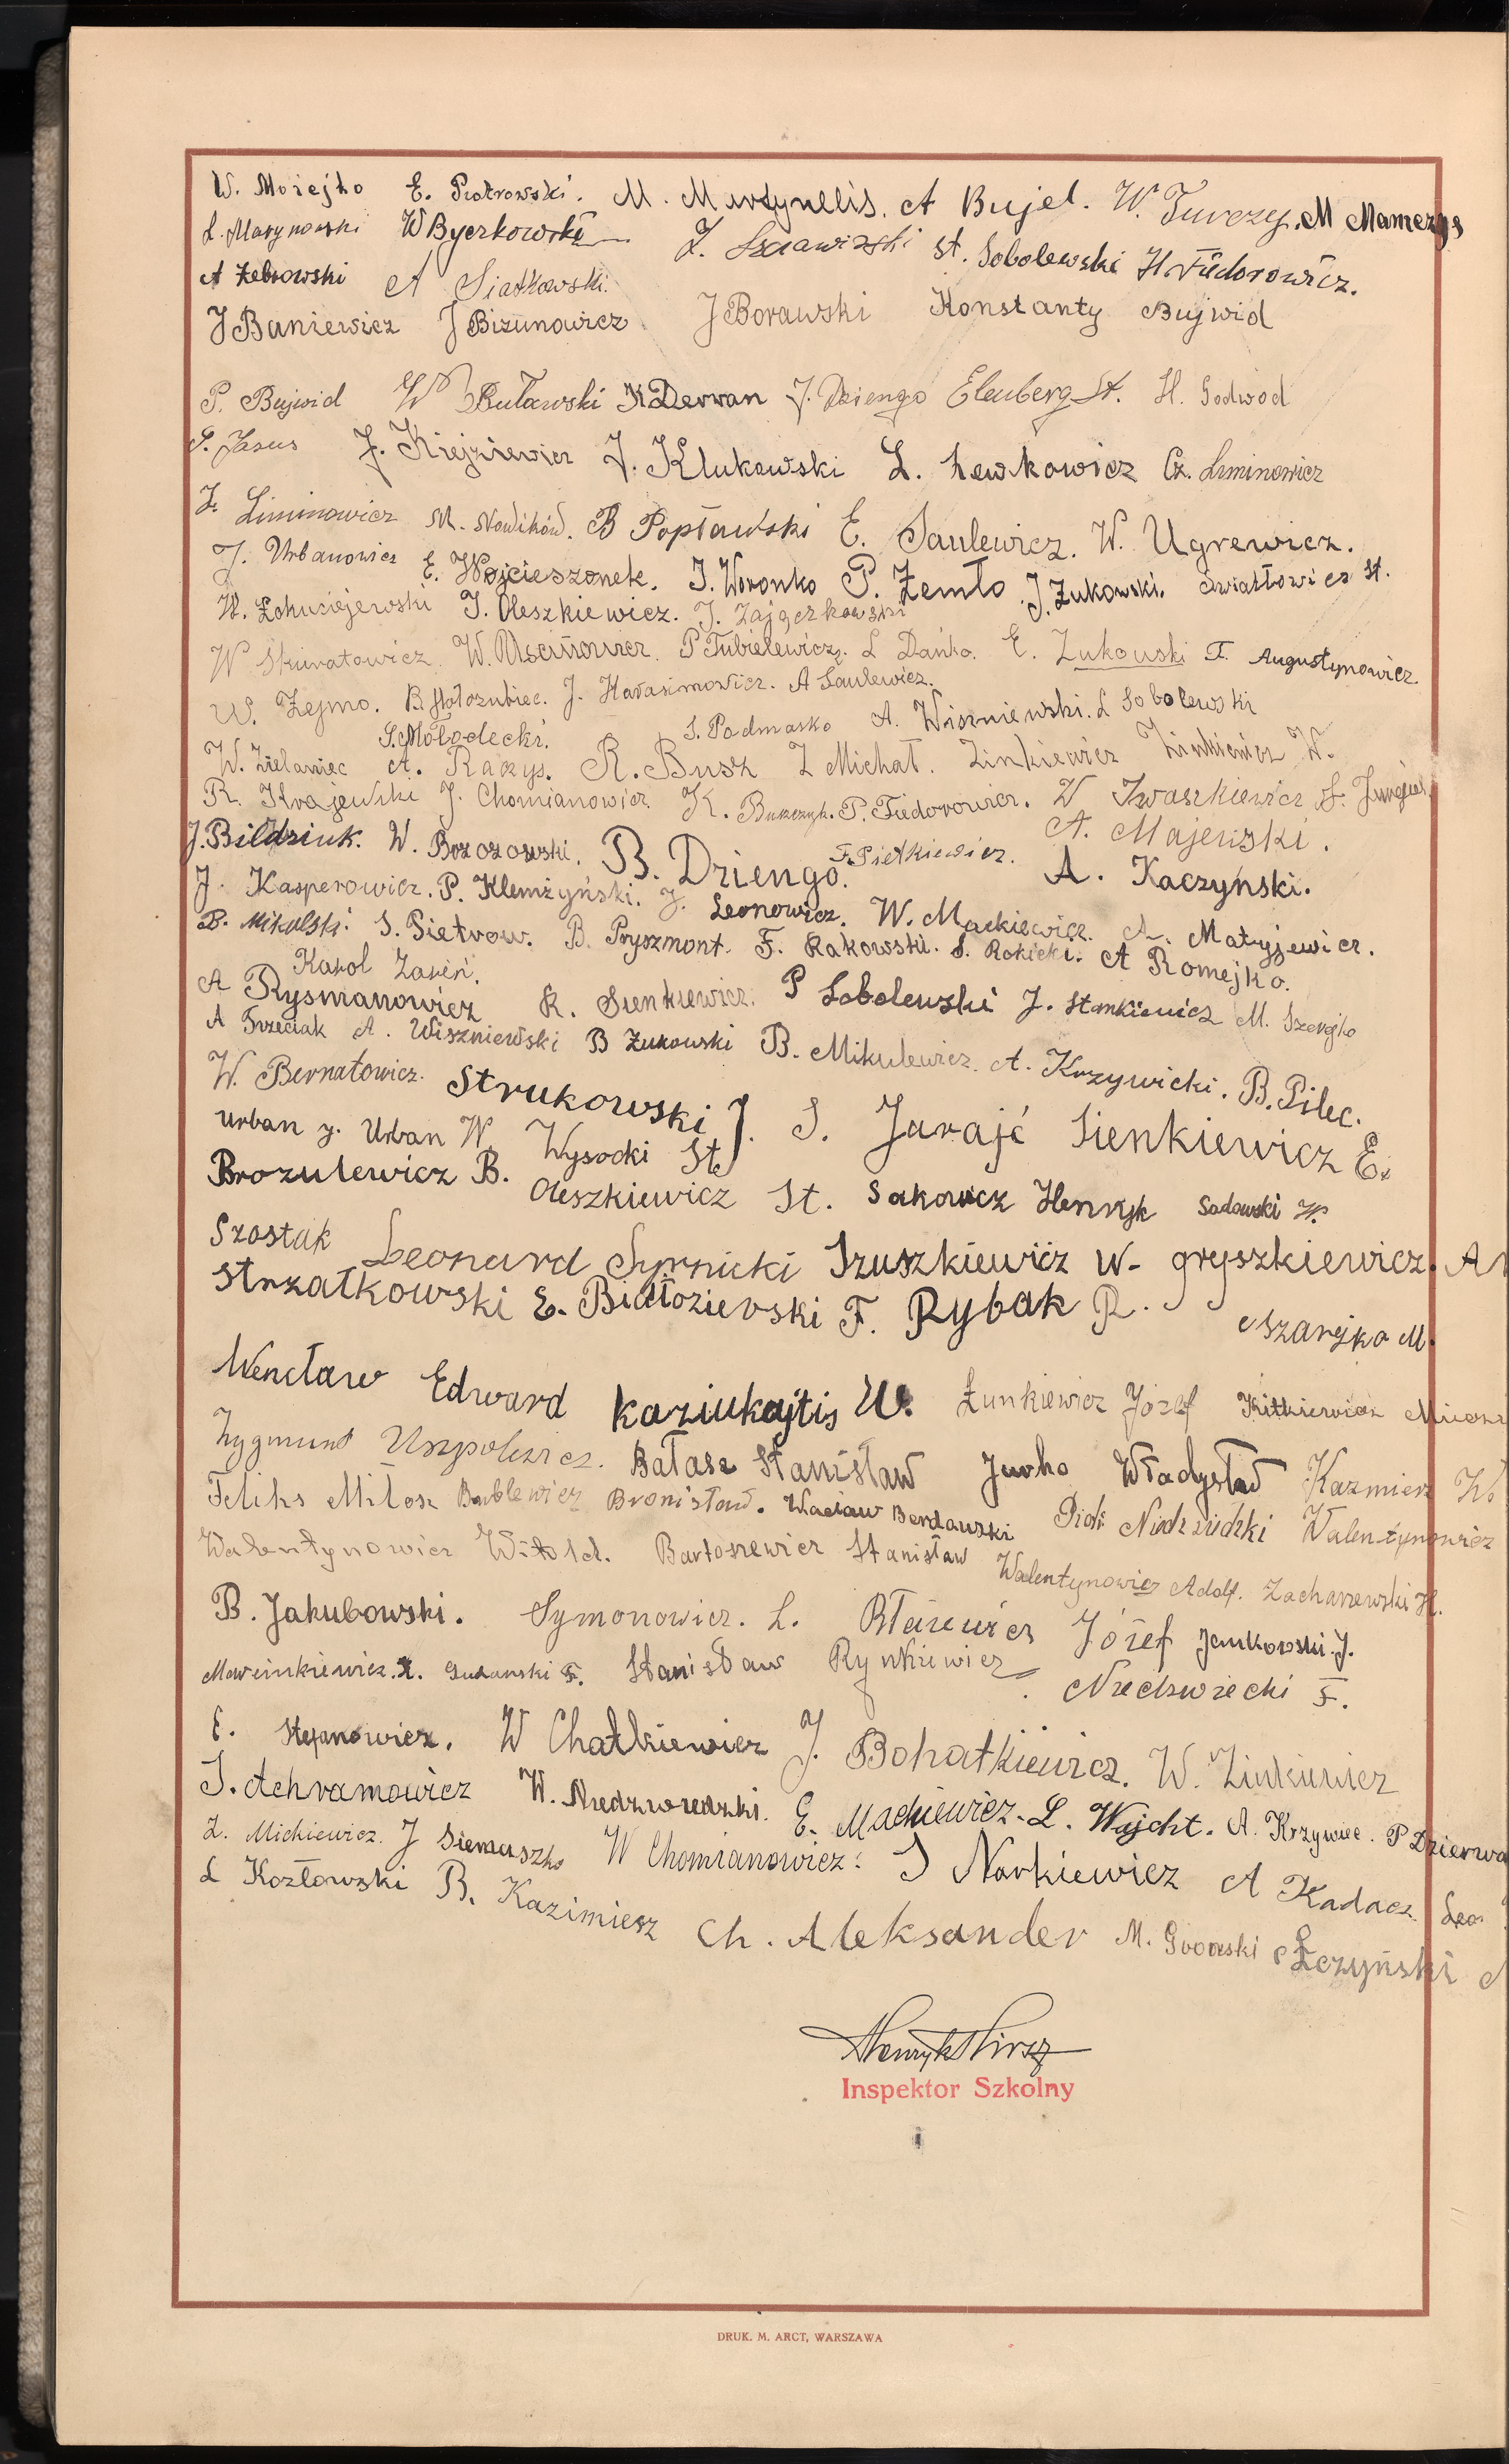 W. Moziejko E. Piotrowski. M. Martynelis. A Bujel. W. Turczy. M Mamczys
L. Marynowski W Byczkowski Z. St. Sobolewski H Fiedorowicz.
A Żebrowski A Siatkowski.
J Baniewicz J Bizunowicz J Borawski Konstanty Bujwid
P. Bujwid W Buławski K Derwan J. Dziengo Elenberg St. H. Godwod
S. Jasus J. Kiejziewicz J. Klukowski L. Lewkowicz Cz. Liminowicz
Z. Liminowicz M. Nowików. B Popławski E. Saulewicz. W. Ugrewicz.
J. Urbanowicz E. Wojcieszonek. J. Woronko P. Żemło J. Żukowski. Światłowicz St.
W. J. Oleszkiewicz. J. Zajączkowski
W Skuratowicz. W. Uscinowicz P Tubielewicz. L Dańko. E. Żukowski F. Augustynowicz.
W. Żejmo. B Hołozubiec. J. Harasimowicz. A Saulewicz.
S. Mołodecki. S. Podmasko A. Wiszniewski. L Sobolewski
W. Zielaniec A. Raczys. R. Busz Z Michał. Zinkiewicz Zinkiewicz W.
R. Krajewski J. Chomianowicz K. Burczyk. P. Fiedorowicz. W Iwaszkiewicz S. Jurgiel.
J. Bildziuk. W. Brzozowski. B. Dziengo. F. Pietkiewicz. A. Majewski.
J. Kasperowicz. P. Klemżyński. J. Leonowicz. W. Mackiewicz. A. Kaczyński.
B. Mikulski. S. Pietrow. B. Pryszmont. F. Rakowski. S. Rokicki. A. Matyjewicz.
Karol Zareń. A Romejko.
A Rysmanowicz R. Sienkiewicz. P Sobolewski J. Stankiewicz M. Szerejko
A Trzeciak A. Wiszniewski B Żukowski B. Mikulewicz. A. Krzywicki. B. Pilec.
W. Bernatowicz. Strukowski J. S. Jarajć Sienkiewicz E.
Urban J. Urban W. Wysocki St.
Brozulewicz B. Oleszkiewicz St. Sakowicz Henryk Sadowski W.
Szostak Leonard Syrnicki Szuszkiewicz W. Gryszkiewicz. A
Strzałkowski E. Białozierski F. Rybak R. Szarejko M.
Wencław Edward Kaziukajtis W. Łunkiewicz Józef Kitkiewicz
Zygmunt Uszpolewicz. Bałasz Stanisław Jurko Władysław Kazmierz
Feliks Miłosz Bublewicz Bronisław. Wacław Berdowski Piotr Niedźwiedzki Walentynowicz
Walentynowicz Witold. Bartoszewicz Stanisław Walentynowicz Adolf. Zacharzewski H.
B. Jakubowski. Symonowicz. L. Błażewicz Józef Jankowski. J.
Marcinkiewicz. Z. Gudanski F. Stanisław Rynkiewicz Niedzwiecki F.
E. Stefanowicz. W Chatkiewicz J. Bohatkiewicz. W. Zinkiewicz
J. Achramowicz W. Niedzwiedzki. E. Mackiewicz. L. Wojcht. A. Krzywiec. P Dzierwa
Z. Mickiewicz. J Siemaszko W Chomianowicz. J Narkiewicz A Kadacz
L Kozłowski B. Kazimiesz Ch. Aleksander M. Łczyński
Henryk Hirsz
Inspektor Szkolny
DRUK. M. ARCT, WARSZAWA